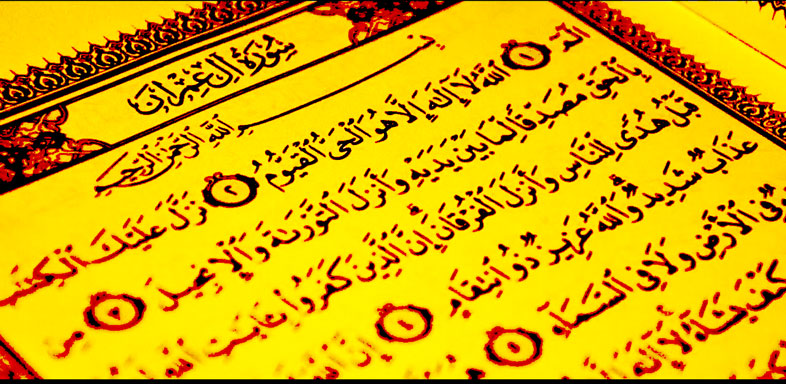 سُورَةُ آلِ عِمْرَان
بِسْمِ اللَّهِ الرَّحْمَٰنِ الرَّحِيمِ
الٓمٓ ١ ٱللَّهُ لَآ إِلَٰهَ إِلَّا هُوَ ٱلْحَىُّ ٱلْقَيُّومُ ٢ نَزَّلَ عَلَيْكَ ٱلْكِتَٰبَ
بِٱلْحَقِّ مُصَدِّقًا لِّمَا بَيْنَ يَدَيْهِ وَأَنزَلَ ٱلتَّوْرَىٰةَ وَٱلْإِنجِيلَ ٣ مِن
قَبْلُ هُدًى لِّلنَّاسِ وَأَنزَلَ ٱلْفُرْقَانَ إِنَّ ٱلَّذِينَ كَفَرُوا۟ بِـَٔايَٰتِ ٱللَّهِ
عَذَابٌ شَدِيدٌ وَٱللَّهُ عَزِيزٌ ذُو ٱنتِقَامٍ ٤ إِنَّ ٱللَّهَ
فِى ٱلْأَرْضِ وَلَا فِى ٱلسَّمَآءِ ٥
كَيْفَ يَشَآءُ لَآ إِلَٰهَ